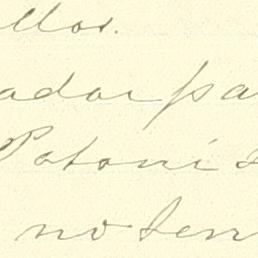 llos.
ador pa
Potoni s
no ten